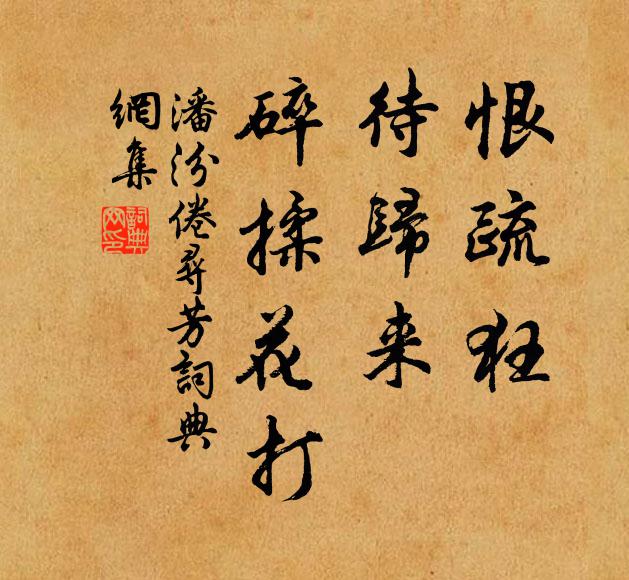 恨疏狂
待歸来
碎揉花打
潘汾倦尋芳詞典
網集
詞典網印